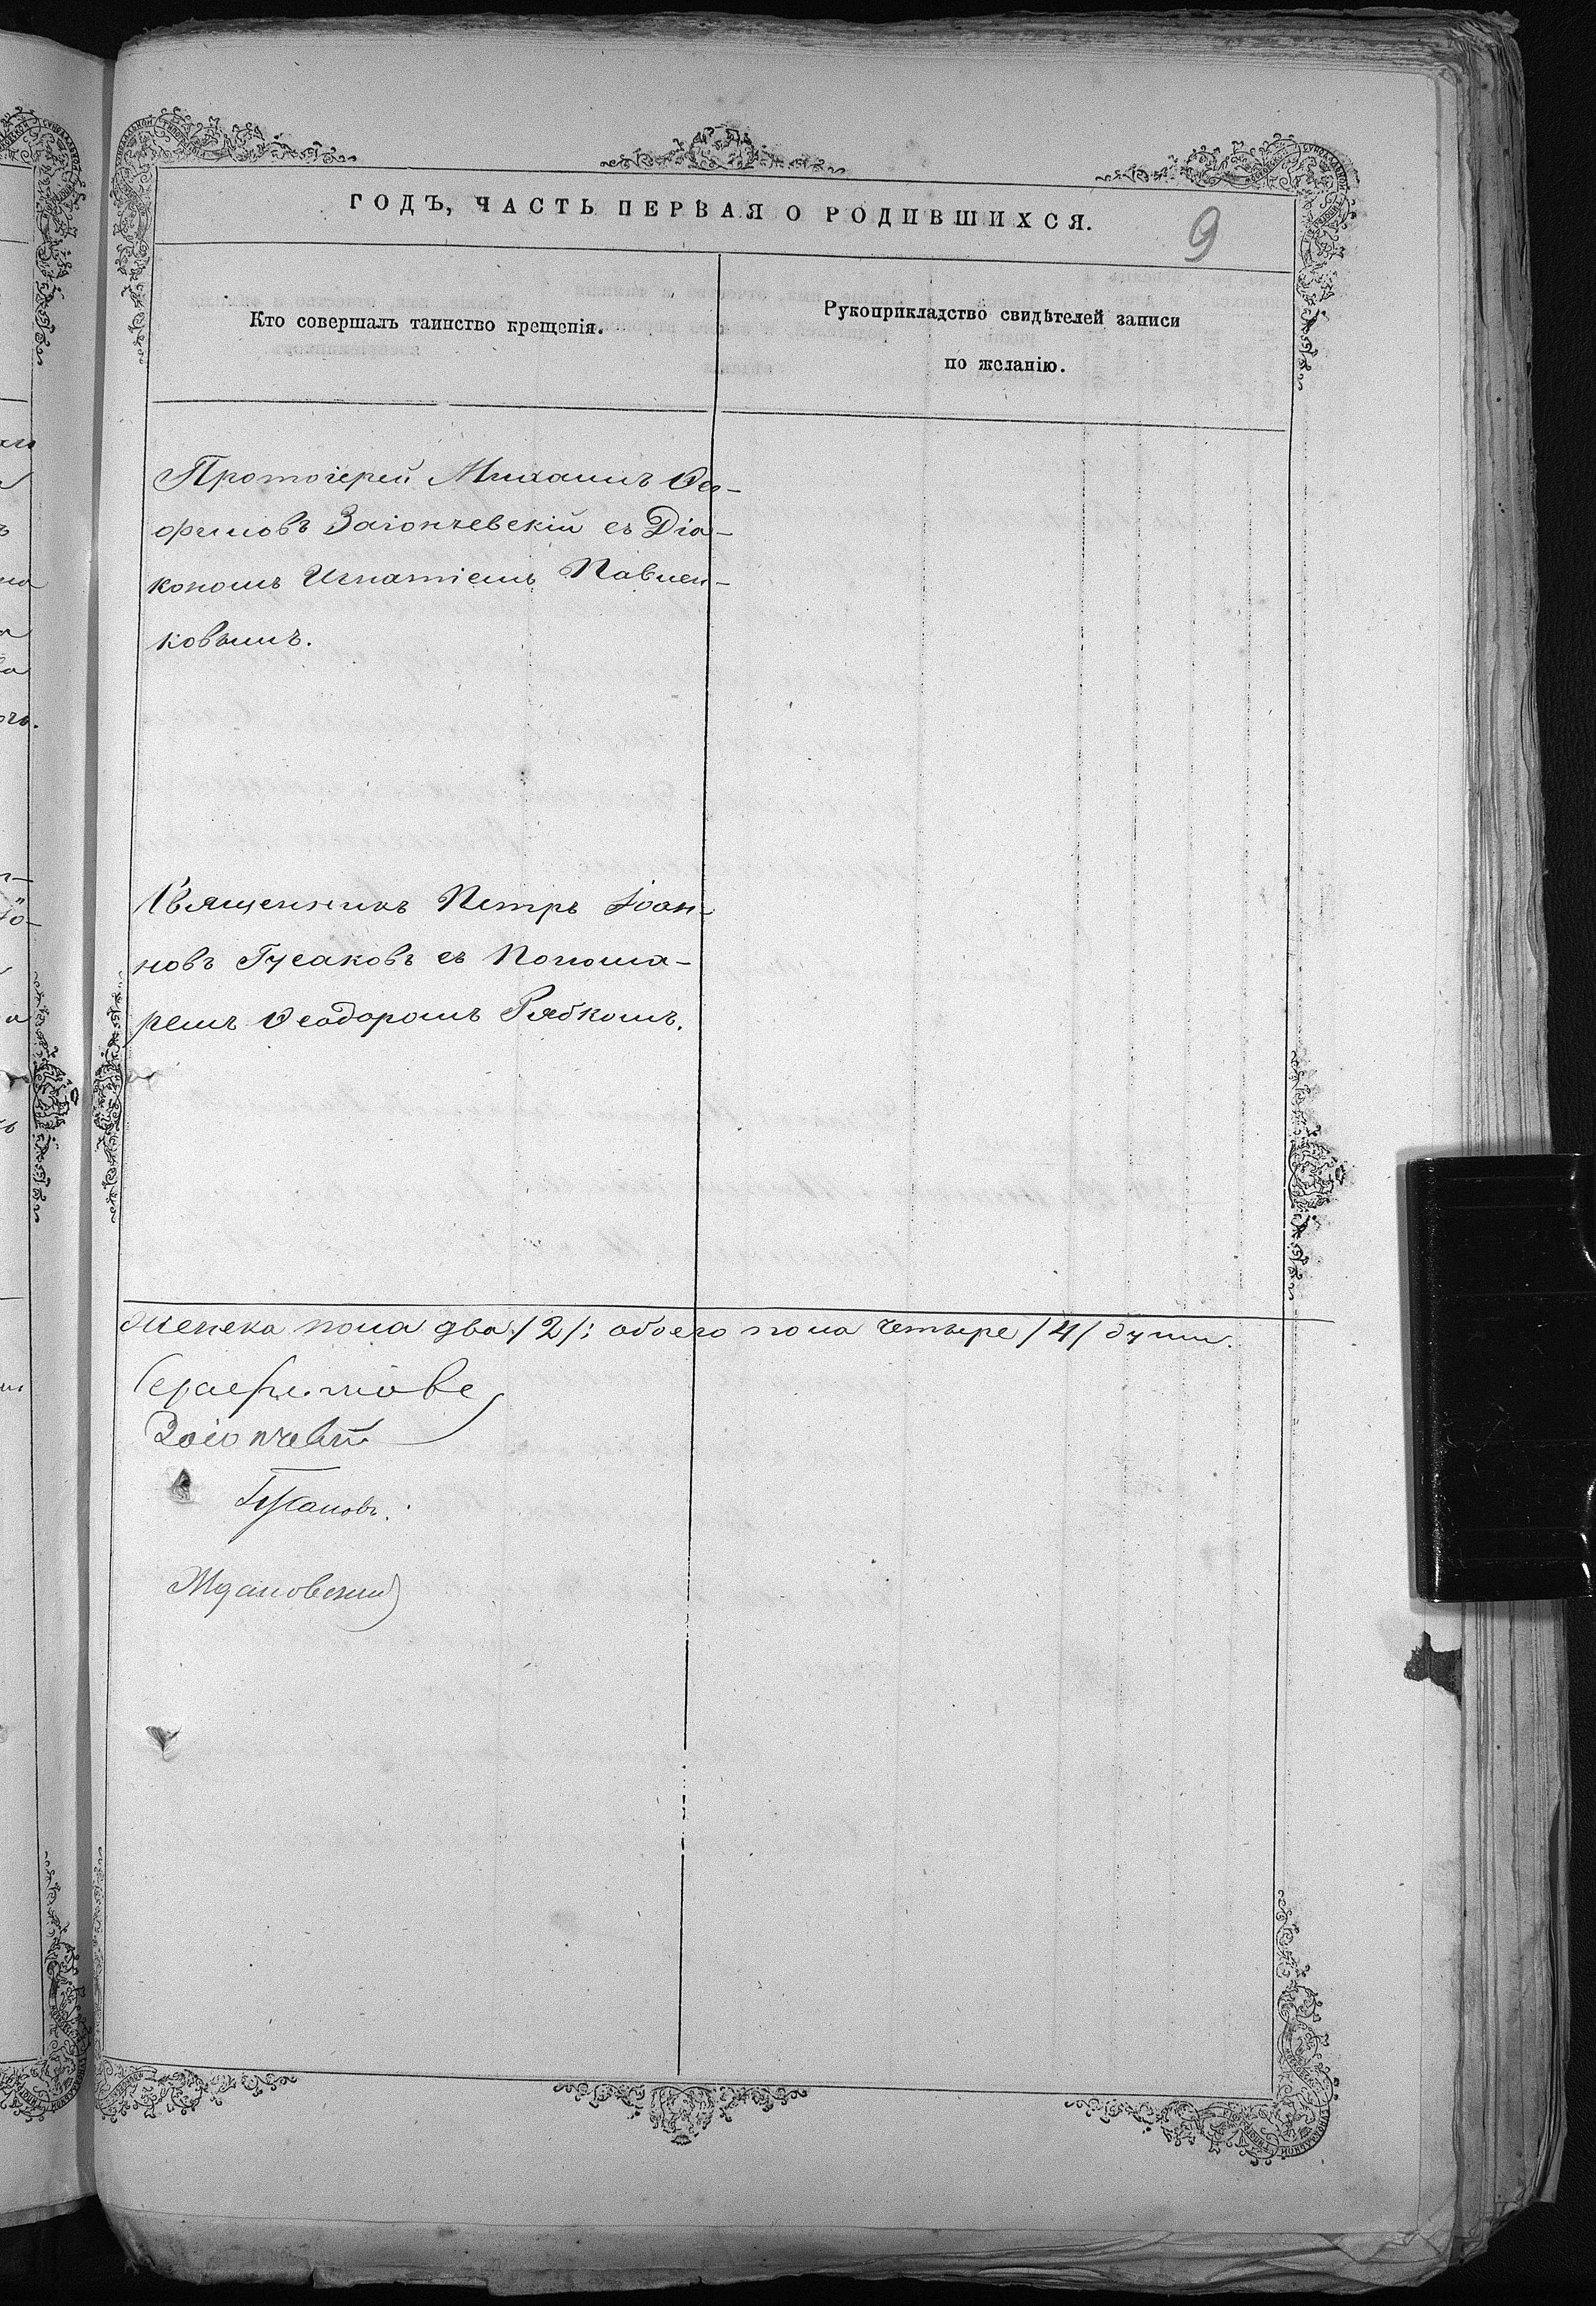 ГОДЪ, ЧАСТЬ ПЕРВАЯ О РОДИВШИХСЯ.
9
Кто совершалъ таинство крещенія.
Рукоприкладство свидѣтелей записи
по желанію.
Протоіерей Михаилъ
Заіончевскій съ Діа-
кономъ Игнатіемъ Павлен-
ковымъ.
Священникъ Петръ Іоан-
новъ Гусаковъ съ Понома-
ремъ Ѳеодоромъ Рябкомъ.
женска пола два /2/; обоего пола четыре /4/ души.
Гусаковъ.
Ждановскій